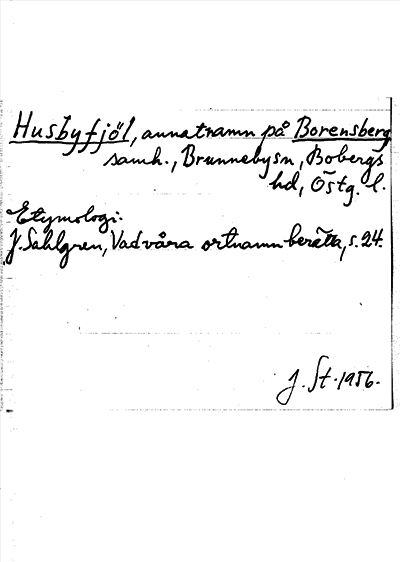 Husbyfjöl, annat namn på Borensberg
samh., Brunnebysn, Bobergs
hd, Östg. l.
Etymologi:
J. Sahlgren, Vad våra ortnamn berätta, s. 24.
J. St. 1956.